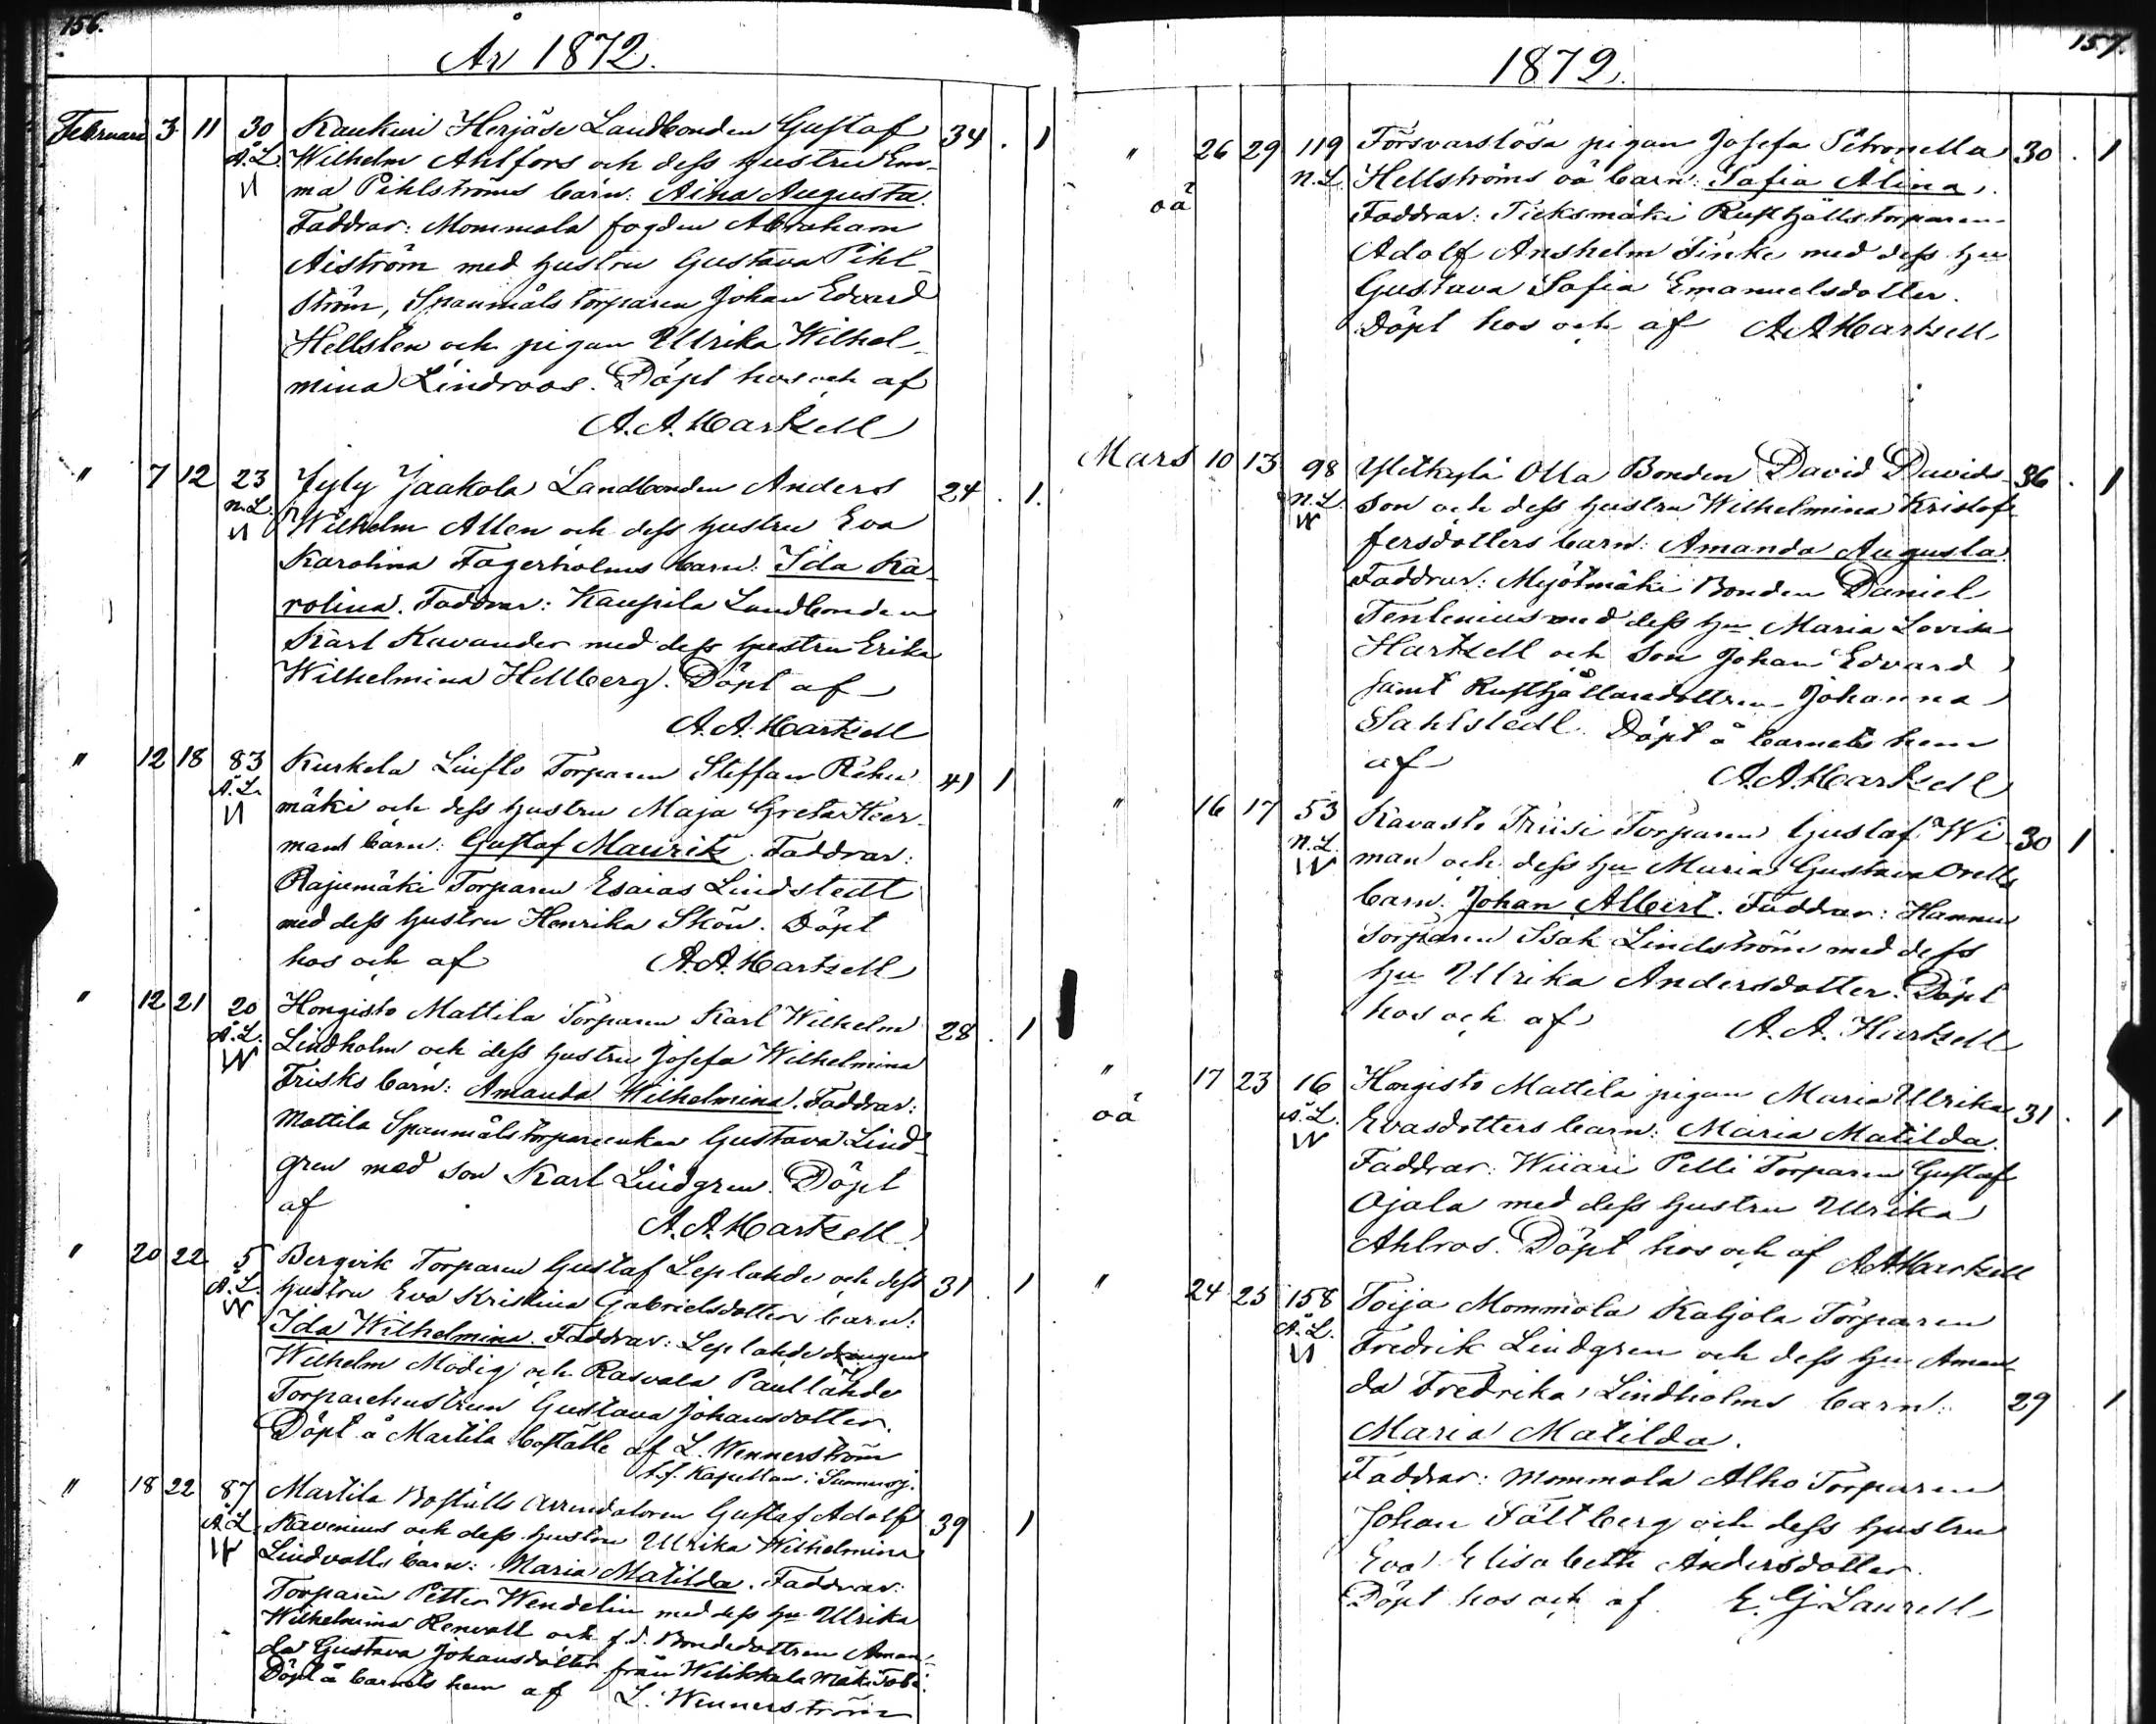 156.
År 1872.
Februari 3 11 30 Kaukuri Herjäse Landbonden Gustaf 34 . 1
Å.L. Wilhelm Ahlfors och dess hustru Em-
ma Pihlströms barn: Aina Augusta.
Faddrar: Mommola fogden Abraham
Aiström med hustru Gustava Pihl-
ström, Spanmåls torparen Johan Edvard
Hellsten och pigan Ulrika Wilhel-
mina Lindroos. Döpt hos och af
A. A. Hartzell
" 7 12 23 Jyly Jaakola Landbonden Anders 24 . 1.
N.L. Wilhelm Allen och dess hustru Eva
Karolina Fagerholms barn: Ida Ka-
rolina. Faddrar: Kaupila Landbonden
Karl Kavander med dess hustru Erika
Wilhelmina Hellberg. Döpt af
A. A. Hartzell
" 12 18 83 Kurkela Torparen Steffan 41 1
Å.L. mäki och dess hustru Maja Greta Heer-
mans barn: Gustaf Mauritz. Faddrar:
Rajumäki Torparen Esaias Lindstedt
med dess hustru Henrika Skön. Döpt
hos och af A. A. Hartzell
" 12 21 20 Hongisto Mattila Torparen Karl Wilhelm 28 . 1
Å.L. Lindholm och dess hustru Josefa Wilhelmina
Frisks barn: Amanda Wilhelmina. Faddrar:
Mattila Spanmåls torpareenkan Gustava Lind-
gren med son Karl Lindgren. Döpt
af A. A. Hartzell.
" 20 22 5 Bergvik Torparen Gustaf Leplahde och dess 31 . 1
Å.L. hustru Eva Kristina Gabrielsdotters barn:
Ida Wilhelmina. Faddrar: Leplahde drängen
Wilhelm Modig och Rasvala Paullahde
Torparehustrun Gustava Johansdotter.
Döpt å Martila boställe af L. Wennerström
t.f. Kapellan i Sumersj.
" 18 22 87 Martila Boställs Arrendatoren Gustaf Adolf 39 . 1
Å.L. Kavenius och dess hustru Ulrika Wilhelmina
Lindvalls barn: Maria Matilda. Faddrar:
Torparen Petter Wendelin med dess hu Ulrika
Wilhelmina Renvall och f.d. Bondedottren Aman-
da Gustava Johansdotter från Wilikkala Mäki Tobi.
Döpt å barnets hem af L. Wennerström
157.
1872.
" 26 29 119 Försvarslösa pigan Josefa Petronella 30 . 1
oä N.L. Hellströms oä barn: Sofia Alina.
Faddrar: Ticksmäki Rusthållstorparen
Adolf Anshelm Finke med dess hu
Gustava Sofia Emanuelsdotter.
Döpt hos och af A. A. Hartzell
Mars 10 13 98 Ylikylä Olla Bonden David Davids- 36 . 1
N.L. son och dess hustru Wilhelmina Kristof-
fersdotters barn: Amanda Augusta.
Faddrar: Myötmäki Bonden Daniel
Tenlenius med dess hu Maria Lovisa
Hartzell och son Johan Edvard
samt Rusthållaredottren Johanna
Sahlstedt. Döpt å barnets hem
af A. A. Hartzell
" 16 17 53 Kavasto Friisi Torparen Gustaf Wi- 30 1 .
N.L. man och dess hu Maria Gustava Orells
barn: Johan Albert. Faddrar: Hannu
Torparen Isak Lindström med dess
hu Ulrika Andersdotter. Döpt
hos och af A. A. Hartzell
" 17 23 16 Hongisto Mattila pigan Maria Ulrika 31 . 1
oä Å.L. Evasdotters barn: Maria Matilda.
Faddrar: Wiiari Pelli Torparen Gustaf
Ojala med dess hustru Ulrika
Ahlros. Döpt hos och af A. A. Hartzell
" 24 25 158 Toija Mommola Kaljola Torparen
Å.L. Fredrik Lindgren och dess hu Aman-
da Fredrika Lindholms barn: 29 . 1
Maria Matilda.
Faddrar: Mommola Alho Torparen
Johan Fältberg och dess hustru
Eva Elisabeth Andersdotter.
Döpt hos och af E. G. Laurell